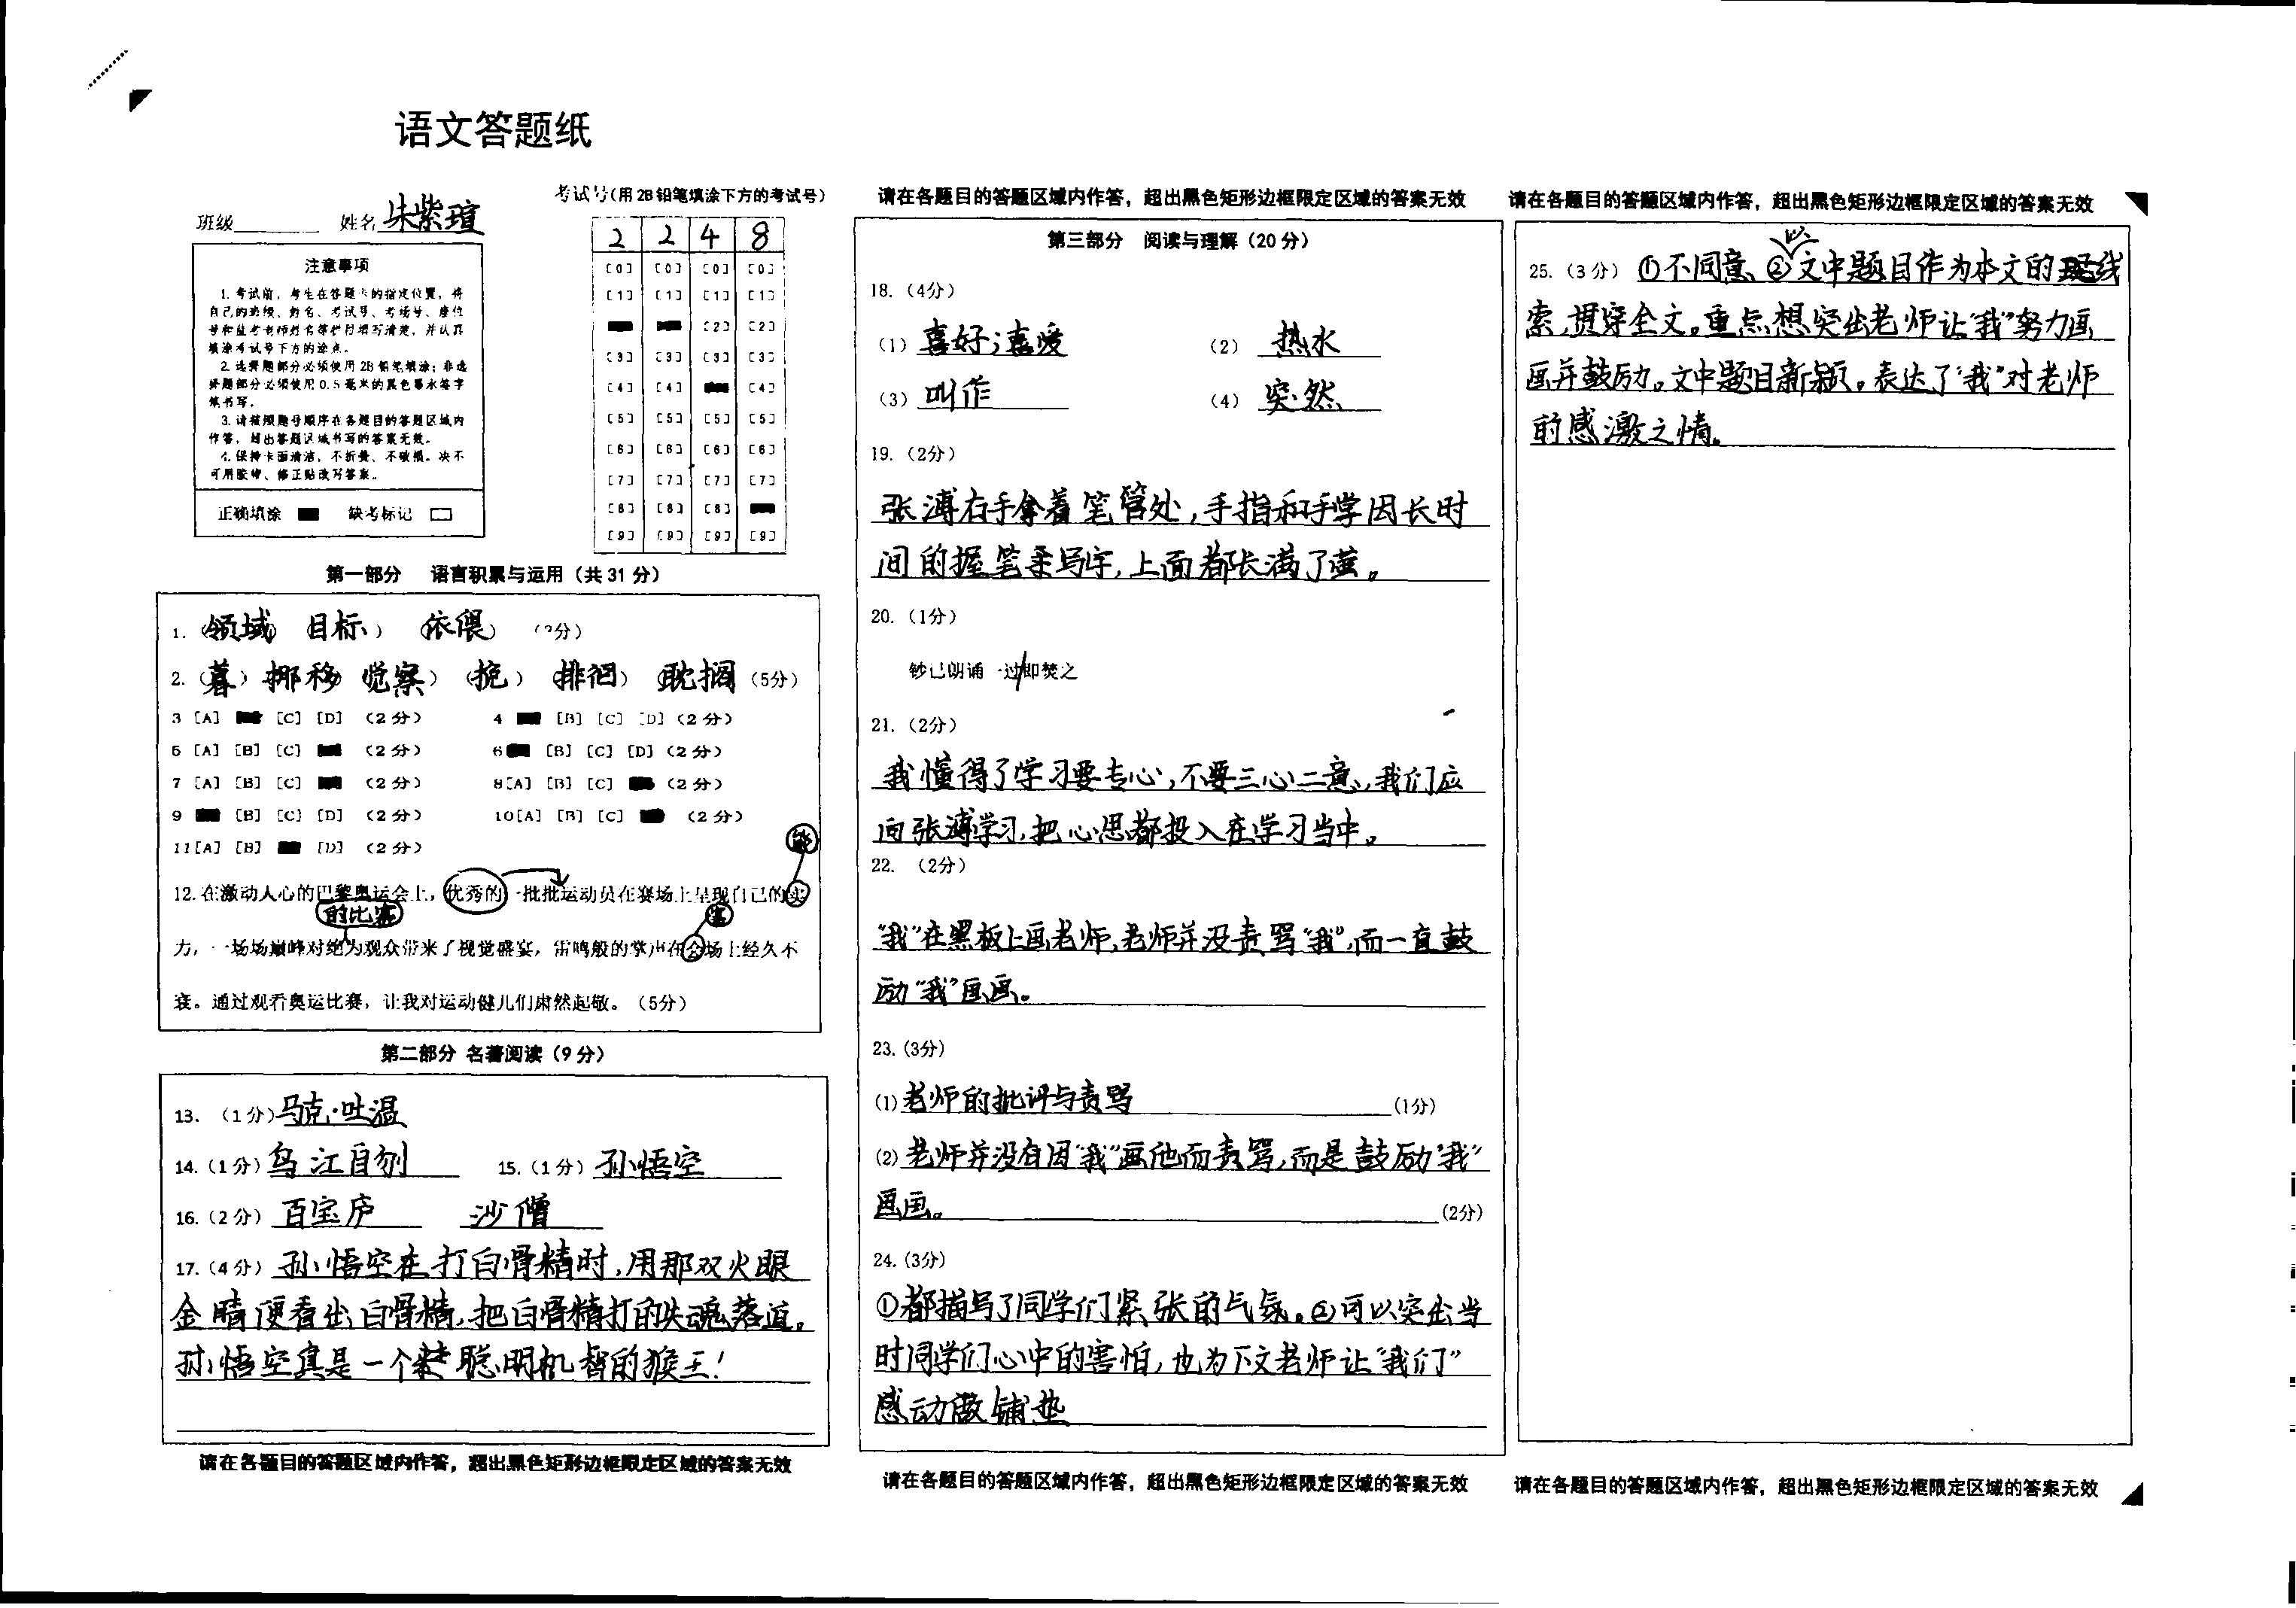 语文答题纸
班级 姓名 朱紫瑄
考试号(用2B铅笔填涂下方的考试号)
2 2 4 8
[0] [0] [0] [0]
[1] [1] [1] [1]
[2] [2]
[3] [3] [3] [3]
[4] [4] [4]
[5] [5] [5] [5]
[6] [6] [6] [6]
[7] [7] [7] [7]
[8] [8] [8]
[9] [9] [9] [9]
注意事项
1. 考试前，考生在答题卡的指定位置，将
自己的班级、姓名、考试号、考场号、座位
号和监考老师姓名等栏目填写清楚，并认真
填涂考试号下方的涂点。
2. 选择题部分必须使用2B铅笔填涂；非选
择题部分必须使用0.5毫米的黑色墨水签字
笔书写。
3. 请按照题号顺序在各题目的答题区域内
作答，超出答题区域书写的答案无效。
4. 保持卡面清洁，不折叠、不破损。决不
可用胶带、修正贴改写答案。
正确填涂 缺考标记
第一部分 语言积累与运用（共31分）
1.（领域）（目标）（依偎）（3分）
2.（暮）（挪移）（觉察）（掩）（徘徊）（耽搁）（5分）
3 [A] [C] [D] （2分） 4 [B] [C] [D]（2分）
5 [A] [B] [C] （2分） 6 [B] [C] [D]（2分）
7 [A] [B] [C] （2分） 8[A] [B] [C] （2分）
9 [B] [C] [D] （2分） 10[A] [B] [C] （2分）
11[A] [B] [D] （2分）
12. 在激动人心的巴黎奥运会上，优秀的一批批运动员在赛场上呈现自己的实
的比赛
力，一场场巅峰对绝为观众带来了视觉盛宴，雷鸣般的掌声在会场上经久不
衰。通过观看奥运比赛，让我对运动健儿们肃然起敬。（5分）
第二部分 名著阅读（9分）
13. （1分）马克·吐温
14.（1分）乌江自刎 15.（1分）孙悟空
16.（2分）百宝庐 沙僧
17.（4分）孙悟空在打白骨精时,用那双火眼
金睛便看出白骨精,把白骨精打的失魂落道。
孙悟空真是一个聪明机智的猴王！
请在各题目的答题区域内作答，超出黑色矩形边框限定区域的答案无效
请在各题目的答题区域内作答，超出黑色矩形边框限定区域的答案无效
第三部分 阅读与理解（20分）
18.（4分）
（1）喜好;喜爱 （2）热水
（3）叫作 （4）突然
19.（2分）
张溥右手拿着笔管处,手指和手掌因长时
间的握笔来写字,上面都长满了茧。
20.（1分）
钞已朗诵一过/即焚之
21.（2分）
我懂得了学习要专心,不要三心二意,我们应
向张溥学习,把心思都投入在学习当中。
22. （2分）
“我”在黑板上画老师,老师并没责骂“我”,而一直鼓
励“我”画画。
23.（3分）
(1)老师的批评与责骂 (1分)
(2)老师并没有因“我”画他而责骂,而是鼓励“我”
画画。 (2分)
24.（3分）
①都描写了同学们紧张的气氛。②可以突出当
时同学们心中的害怕,也为下文老师让“我们”
感动做铺垫
请在各题目的答题区域内作答，超出黑色矩形边框限定区域的答案无效
请在各题目的答题区域内作答，超出黑色矩形边框限定区域的答案无效
25.（3分）①不同意、②以文中题目作为本文的线
索,贯穿全文。重点想突出老师让“我”努力画
画并鼓励。文中题目新颖。表达了“我”对老师
的感激之情。
请在各题目的答题区域内作答，超出黑色矩形边框限定区域的答案无效